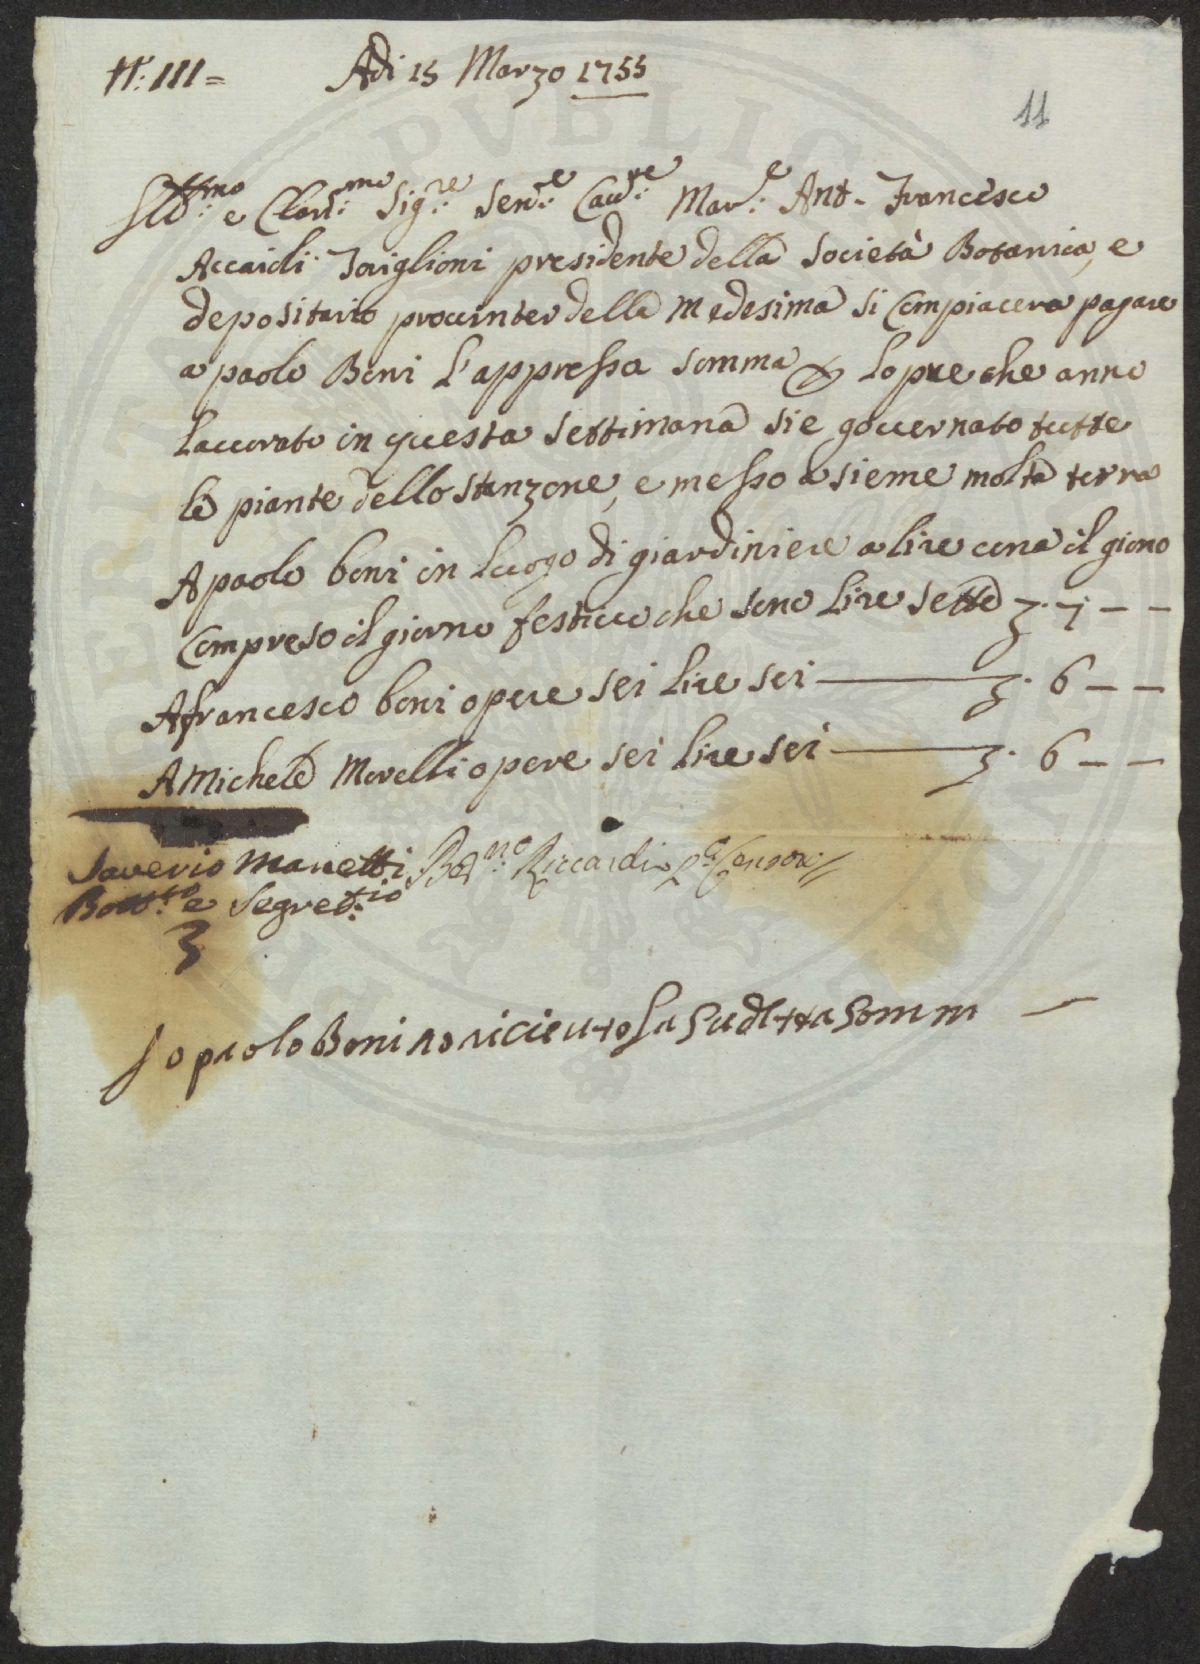 N: III =
Adi 15 Marzo 1755
11
Ill:mo e Clari:mo Sig:re Sen:e Cav:re Mar:e Ant. Francesco
Accaioli Toriglioni presidente della Società Botanica, e
depositario della medesima si Compiacera pagare
a paolo Boni l'appressa somma lopre che anno
lavorato in questa settimana sie governato tutte
le piante dello stanzone, e messo asieme molta terra
A paolo boni in luogo di giardiniere a lire una il giono
Compreso il giorno festivo che sono Lire sette 7 – –
A francesco boni opere sei lire sei 6 – –
A Michele Morelli opere sei lire sei 6 – –
Saverio Manetti Be:no Riccardi Censore
Bott:co e Segret:io
Io paolo Boni o riceuto la sudetta Somm